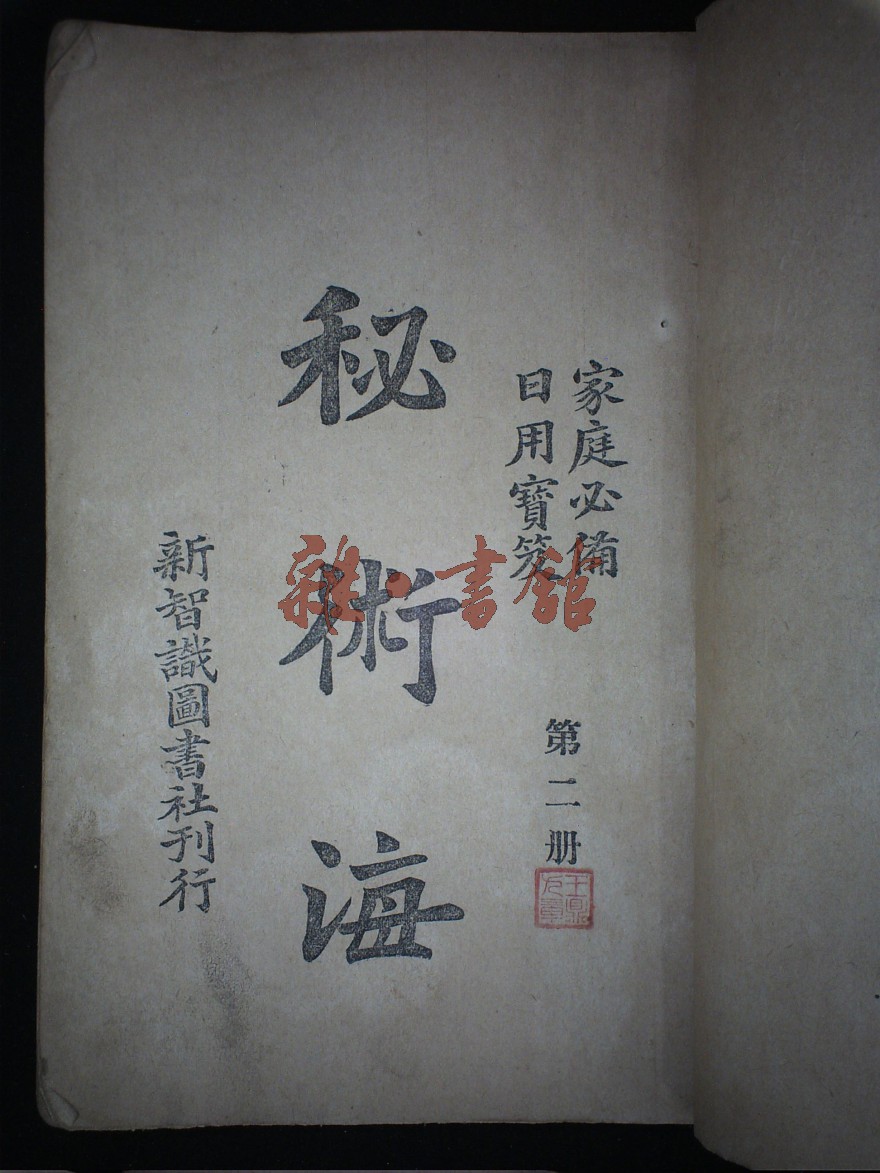 家庭必備
日用寶笈
第二册
秘術海
新智識圖書社刊行
雜·書館